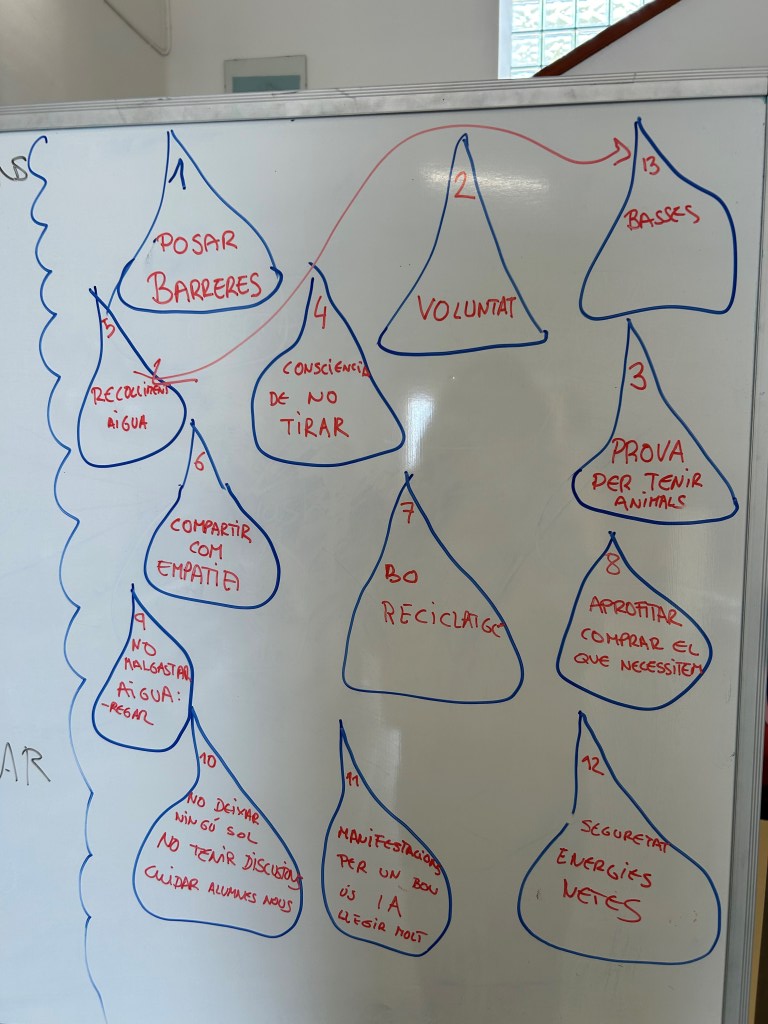 AS
1
POSAR
BARRERES
2
VOLUNTAT
13
BASSES
5
RECOLLIMENT
AIGUA
4
CONSCIENCIA
DE NO
TIRAR
3
PROVA
PER TENIR
ANIMALS
6
COMPARTIR
COM
EMPATIA
7
BO
RECICLATGE
8
APROFITAR
COMPRAR EL
QUE NECESSITEM
9
NO
MALGASTAR
AIGUA:
-REGAR
AR
10
NO DEIXAR
NINGÚ SOL
NO TENIR DISCUSIONS
CUIDAR ALUMNES NOUS
11
MANIFESTACIONS
PER UN BON
ÚS IA
LLEGIR MOLT
12
SEGURETAT
ENERGIES
NETES